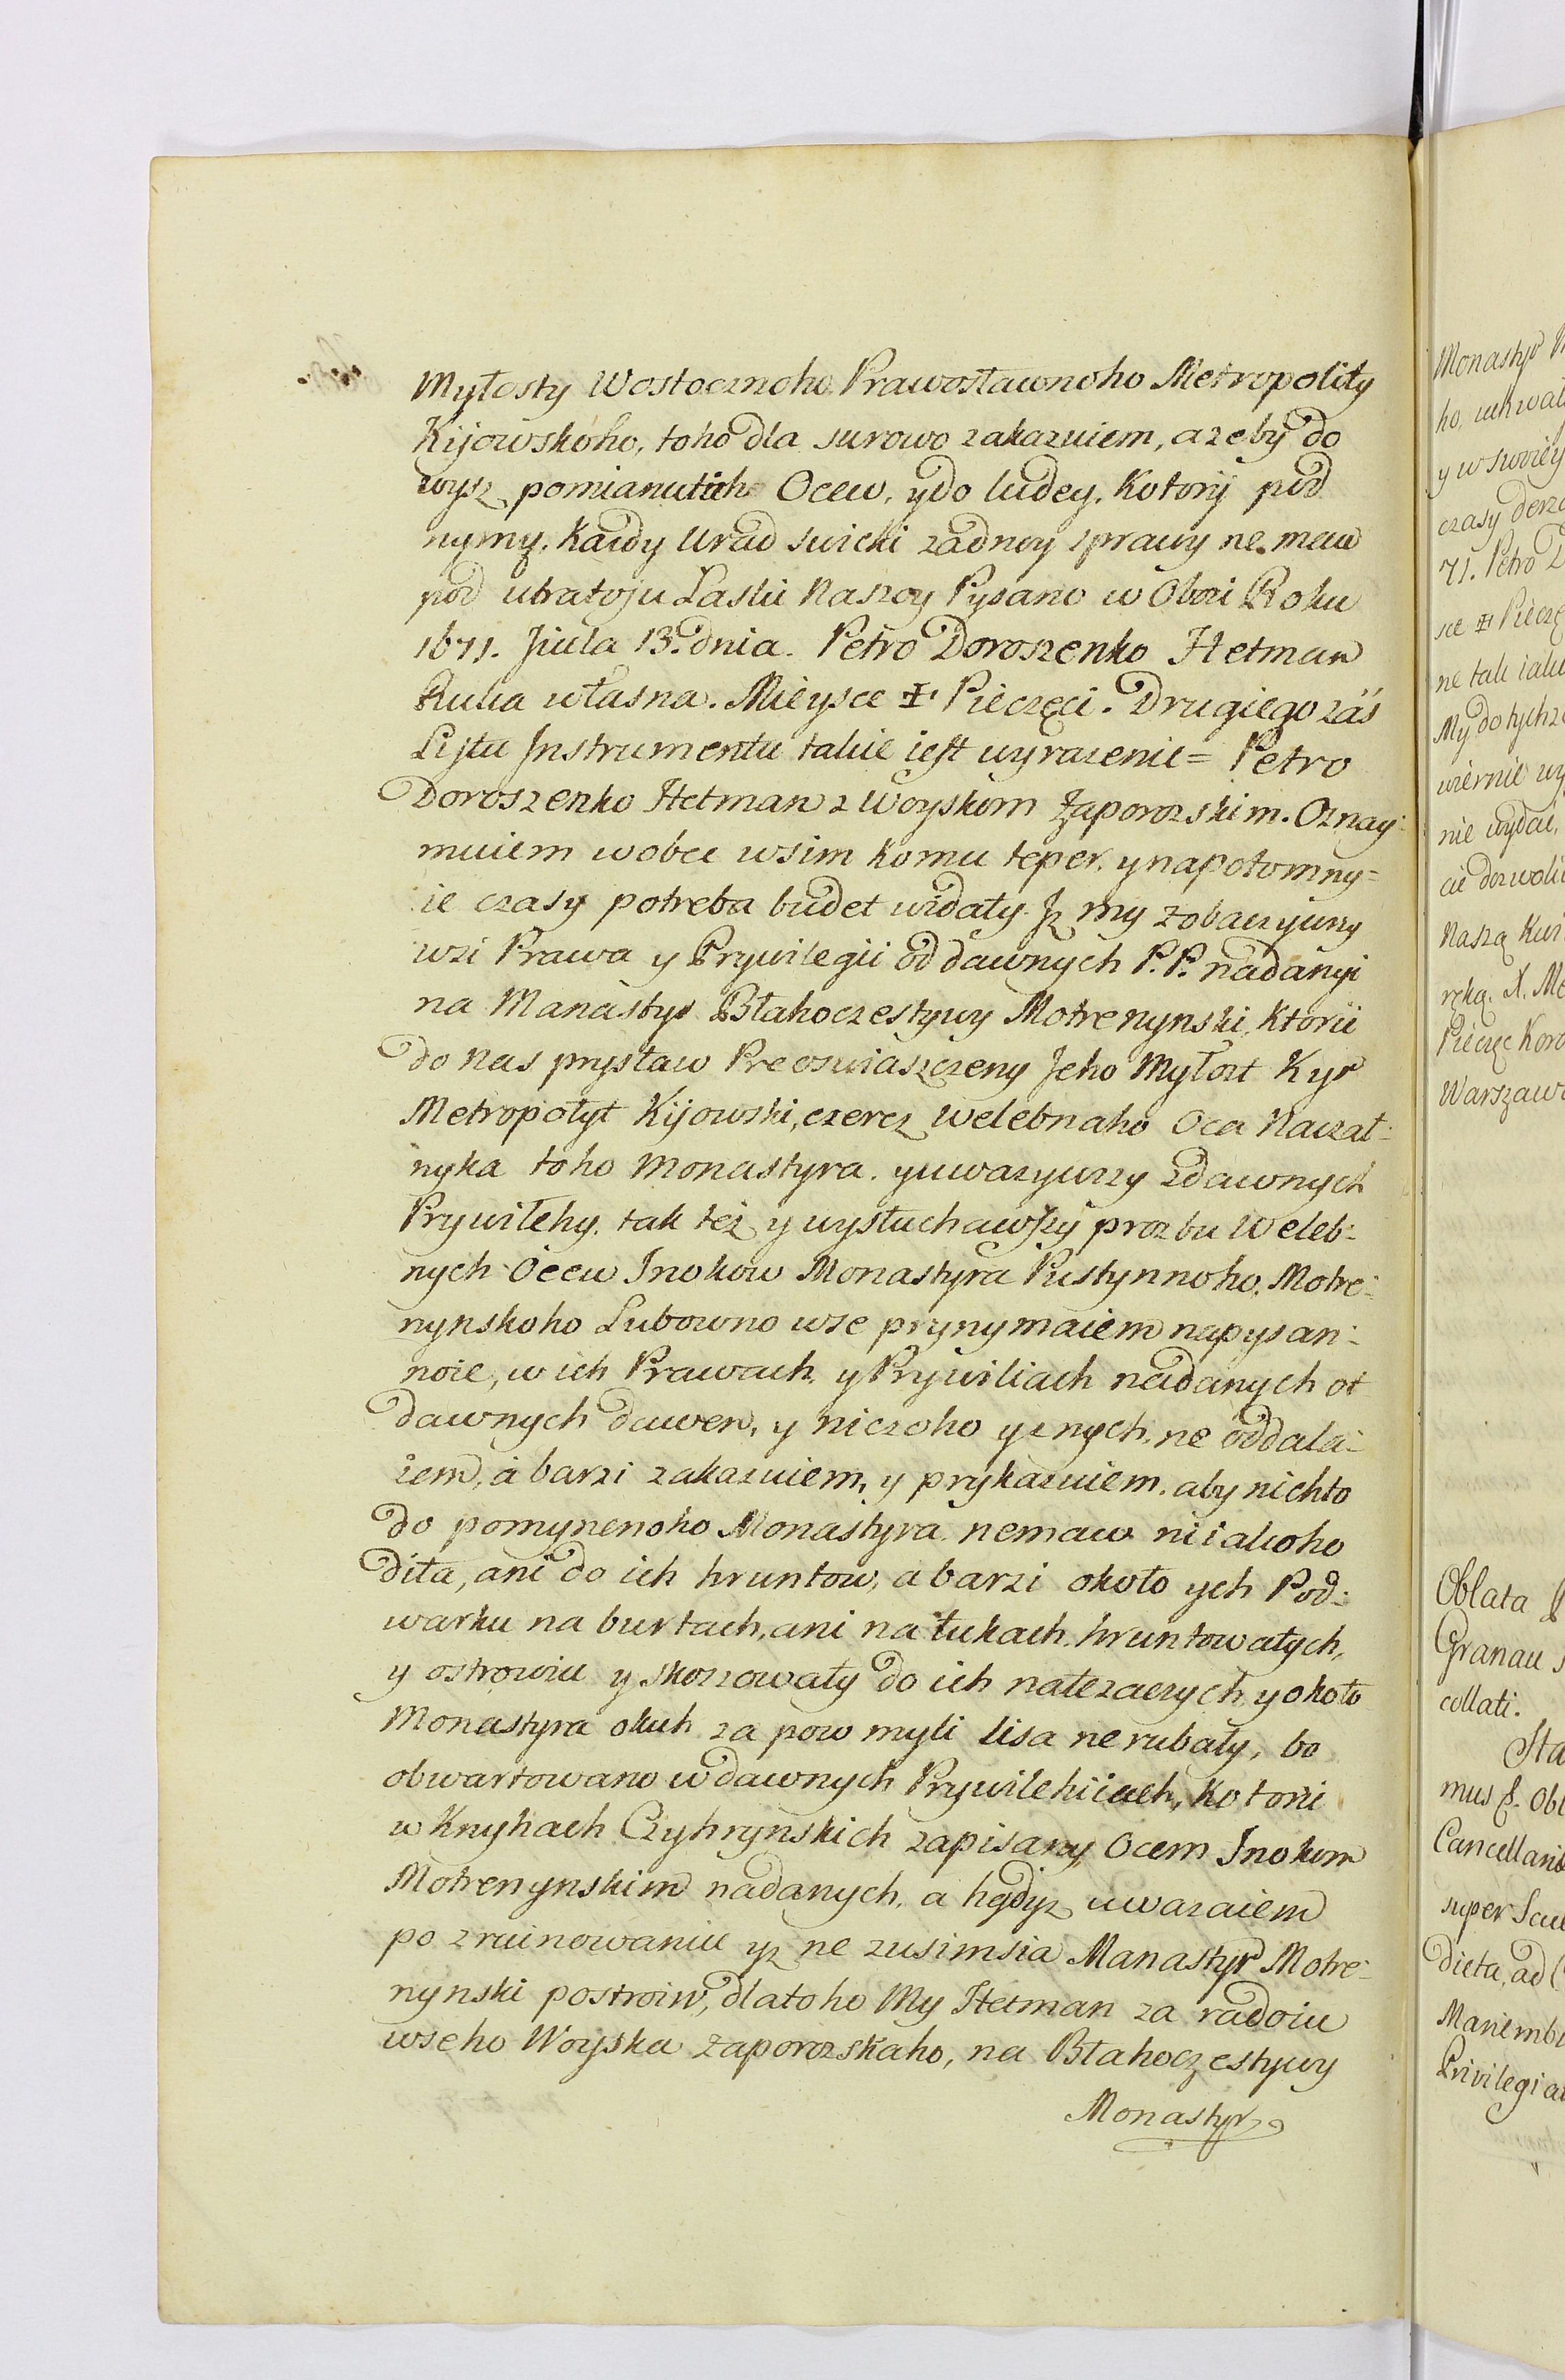 Myłosty Wostocznoho Prawosławnoho Metropolity
Kijowskoho, toho dla surowo zakazuiem, azeby do
wysz pomianutich Ocew, y do ludey, Kotorij pod
nymy, Kazdy Urad swicki zadnoy sprawy ne mew
pod utratoju Laski Naszoy Pysano w Obozi Roku
1671. Jiula 13. dnia. Petro Doroszenko Hetman
Ruka własna. Mieysce ✠ Pieczęci. Drugiego zaś
Listu Jnstrumentu takie iest wyrazenie = Petro
Doroszenko Hetman z Woyskom Zaporozskim. Oznay:
muiem wobec wsim komu teper, y napotomny=
ie czasy potreba budet widaty. Jz my zobaczywszy
wsi Prawa y Prywilegii od dawnych P.P. nadanyi
na Manastyr Błahoczestywy Motrenynski, Ktorii
do nas prysław Preoswiaszczeny Jeho Myłost Kyr
Metropołyt Kijowski, czerez Welebnaho Oca Naczał:
nyka toho Monastyra. y uwazywszy z dawnych
Prywilehy, tak też y wysłuchawszy prozbu Weleb:
nych Ocew Jnokow Monastyra Pustynnoho, Motre:
nynskoho Lubowno wse prynymaiem napysan:
noie, w ich Prawach, y Prywiliach nadanych ot
dawnych dawen, y niczoho yznych, ne oddala:
iem, a barzi zakazuiem, y prykazuiem, aby nichto
do pomynenoho Monastyra nemaw niiakoho
diła, ani do ich hruntow, a barzi około ych Pod:
warku na burtach, ani na łukach hruntowałych,
y ostrowiu y skoszowały do ich nałezaczych, y około
Monastyra okuh za pow myli lisa nerubały, bo
obwartowano w dawnych Prywilehiiach, kotorii
w Knyhach Czyhrynskich zapisany Ocem Jnokom
Motrenynskim nadanych, a hędyz uwazaiem
po zruinowaniu yz ne zusimsia Manastyr Motre:
nynski postroiw, dlatoho My Hetman za radoiu
wseho Woyska Zaporozskaho, na Błahoczestywy
Monastyr
Monastyr
ho,
y w swoiey
czasy
71. Petro
sce ✠ Pieczę
ne tak iak
My do tychże
wiernie
nie wydać,
cie dozwoli
Naszą
ręką. X.
Pieczęc
Warszaw
Oblata
Granau
collati.
Sta
mus
Cancellari
super
dicta, ad
Mariemb
Privilegi